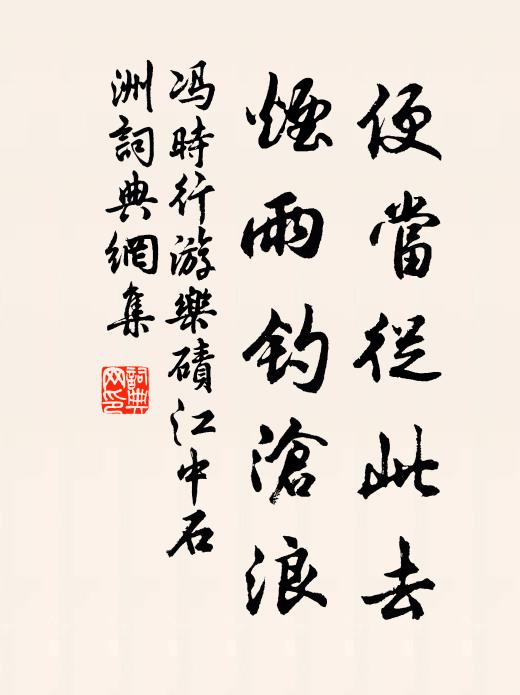 便當從此去
煙雨釣滄浪
冯時行游樂磧江中石
洲詞典網集
詞典
网印